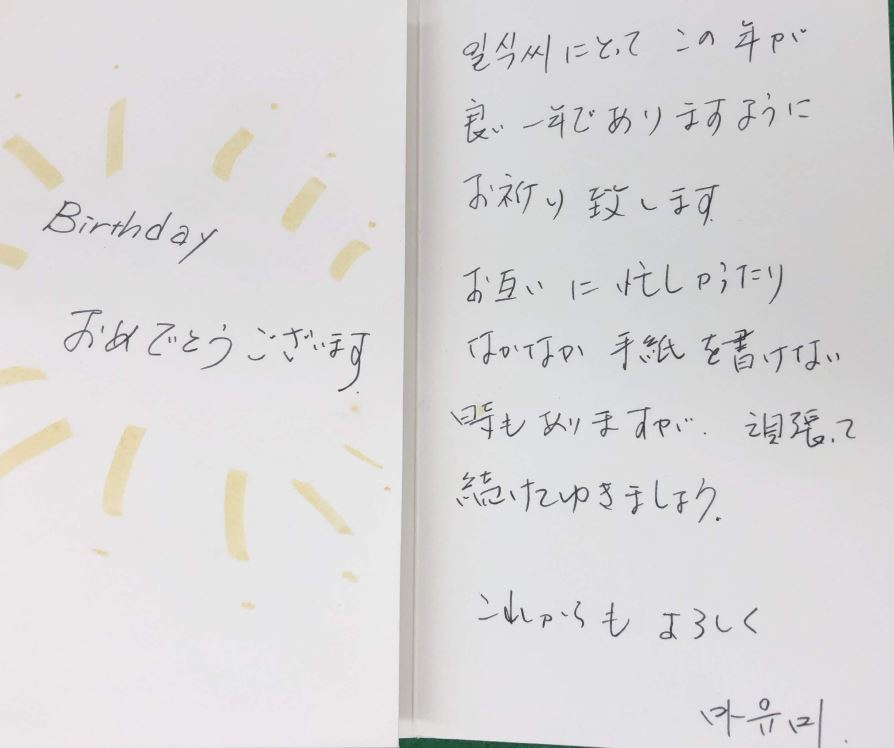 Birthday
おめでとうございます
일식씨にとって この年が
良い一年でありますように
お祈り致します
お互いに忙しかったり
なかなか 手紙を書けない
時もありますが、頑張って
続けてゆきましょう。
これからも よろしく
마유미.